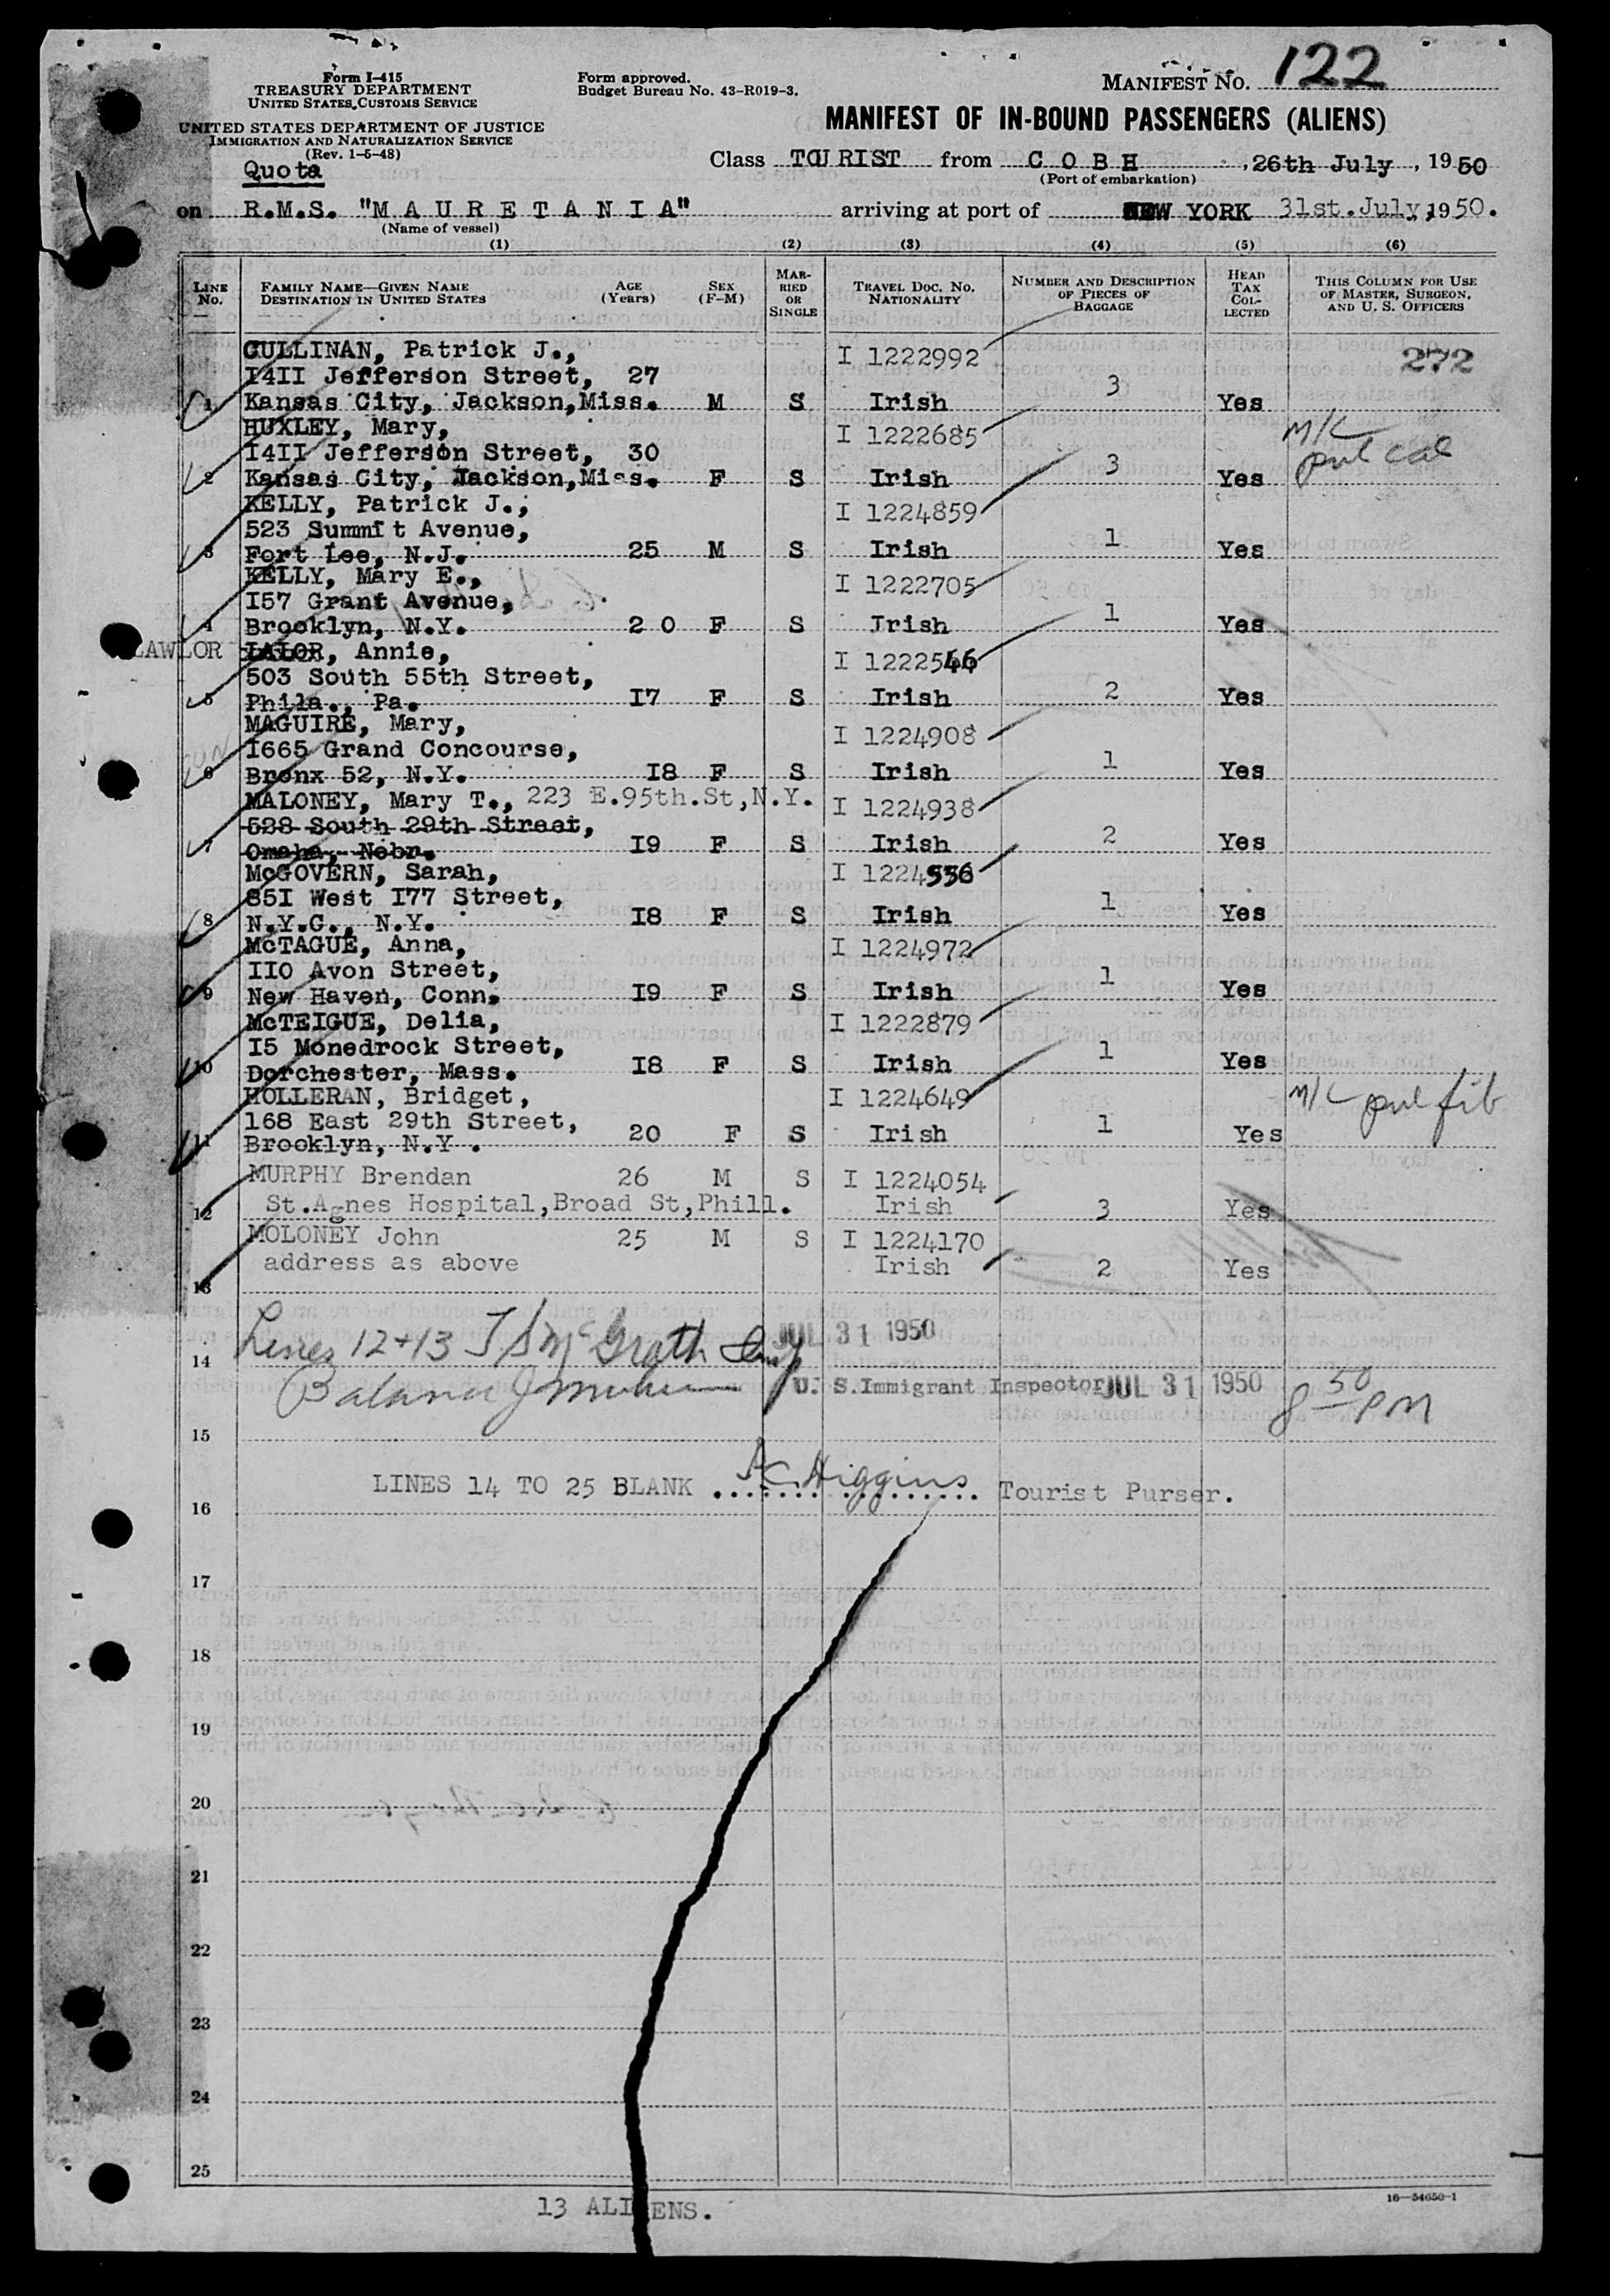 Form I-415
TREASURY DEPARTMENT
UNITED STATES CUSTOMS SERVICE
UNITED STATES DEPARTMENT OF JUSTICE
IMMIGRATION AND NATURALIZATION SERVICE
(Rev. 1-5-48)
Quota
Form approved.
Budget Bureau No. 43-R019-3.
MANIFEST NO. 122
MANIFEST OF IN-BOUND PASSENGERS (ALIENS)
Class TOURIST from COBH, 26th July, 1950
(Port of embarkation)
on R.M.S. "MAURETANIA" arriving at port of NEW YORK 31st.July, 1950.
(Name of vessel)
(1) (2) (3) (4) (5) (6)
LINE No. FAMILY NAME—GIVEN NAME DESTINATION IN UNITED STATES AGE (Years) SEX (F-M) MARRIED OR SINGLE TRAVEL DOC. NO. NATIONALITY NUMBER AND DESCRIPTION OF PIECES OF BAGGAGE HEAD TAX COLLECTED THIS COLUMN FOR USE OF MASTER, SURGEON, AND U. S. OFFICERS
CULLINAN, Patrick J., I 1222992 272
I4II Jefferson Street, 27 3
1 Kansas City, Jackson,Miss. M S Irish Yes
HUXLEY, Mary, I 1222685 M/C
I4II Jefferson Street, 30 3 pul cal
2 Kansas City, Jackson,Miss. F S Irish Yes
KELLY, Patrick J., I 1224859
523 Summit Avenue, 1
3 Fort Lee, N.J. 25 M S Irish Yes
KELLY, Mary E., I 1222705
I57 Grant Avenue, 1
4 Brooklyn, N.Y. 2 0 F S Irish Yes
LAWLOR LALOR, Annie, I 1222546
503 South 55th Street, 2
5 Phila., Pa. I7 F S Irish Yes
MAGUIRE, Mary, I 1224908
I665 Grand Concourse, 1
6 Bronx 52, N.Y. I8 F S Irish Yes
MALONEY, Mary T., 223 E.95th.St,N.Y. I 1224938
528 South 29th Street, 2
7 Omaha, Nebr. I9 F S Irish Yes
McGOVERN, Sarah, I 1224556
851 West I77 Street, 1
8 N.Y.C., N.Y. I8 F S Irish Yes
McTAGUE, Anna, I 1224972
IIO Avon Street, 1
9 New Haven, Conn. I9 F S Irish Yes
McTEIGUE, Delia, I 1222879
I5 Monedrock Street, 1
10 Dorchester, Mass. I8 F S Irish Yes
HOLLERAN, Bridget, I 1224649 M/C pul fib
168 East 29th Street, 1
11 Brooklyn, N.Y. 20 F S Irish Yes
MURPHY Brendan 26 M S I 1224054
12 St.Agnes Hospital,Broad St,Phill. Irish 3 Yes
MOLONEY John 25 M S I 1224170
address as above Irish 2 Yes
13
Lines 12+13 J S McGrath JUL 31 1950
14
Balance U. S. Immigrant Inspector JUL 31 1950 8 50 PM
15
LINES 14 TO 25 BLANK A C Higgins Tourist Purser.
16
17
18
19
20
21
22
23
24
25
13 ALIENS.
16—54650-1